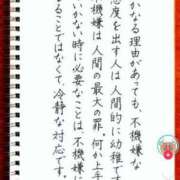 かなる理由があっても、不機嫌な
態度を出す人は人間的に幼稚で
不機嫌は人間の最大の罪。何か上手
いかない時に必要なことは、不機嫌に
ることではなくて、冷静な対応です。